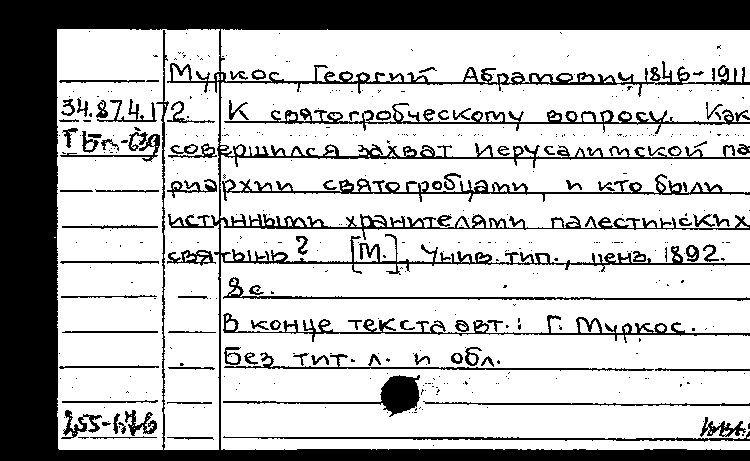 Муркос, Георгий Абрамович, 1846-1911
34.87.4.172 К святогробческому вопросу. Как
совершился захват Иерусалимской па
риархии святогробцами, и кто были
истинными хранителями палестинских
святынь? [М.], Унив. тип., ценз. 1892.
8 с.
В конце текста авт.: Г. Муркос.
Без тит. л. и обл.